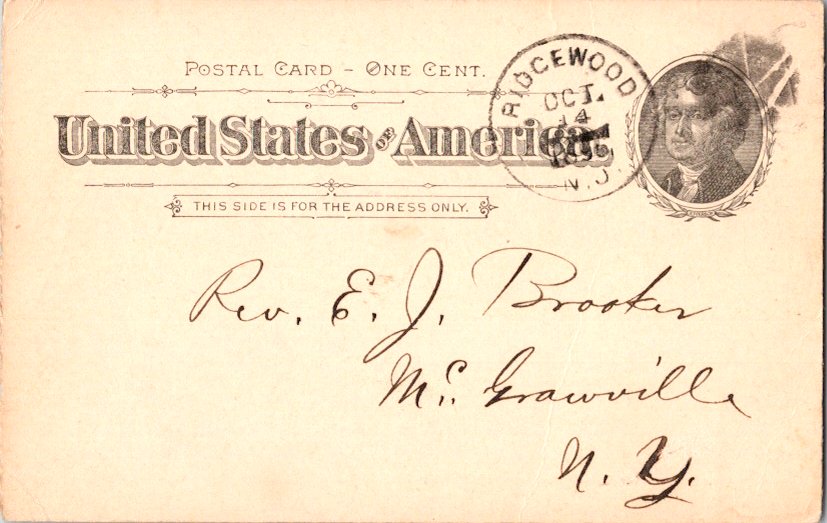 POSTAL CARD – ONE CENT.
United States of America.
THIS SIDE IS FOR THE ADDRESS ONLY.
RIDGEWOOD
OCT.
14
N.J.
Rev. E. J. Brooker
Mc. Grawville
N. Y.